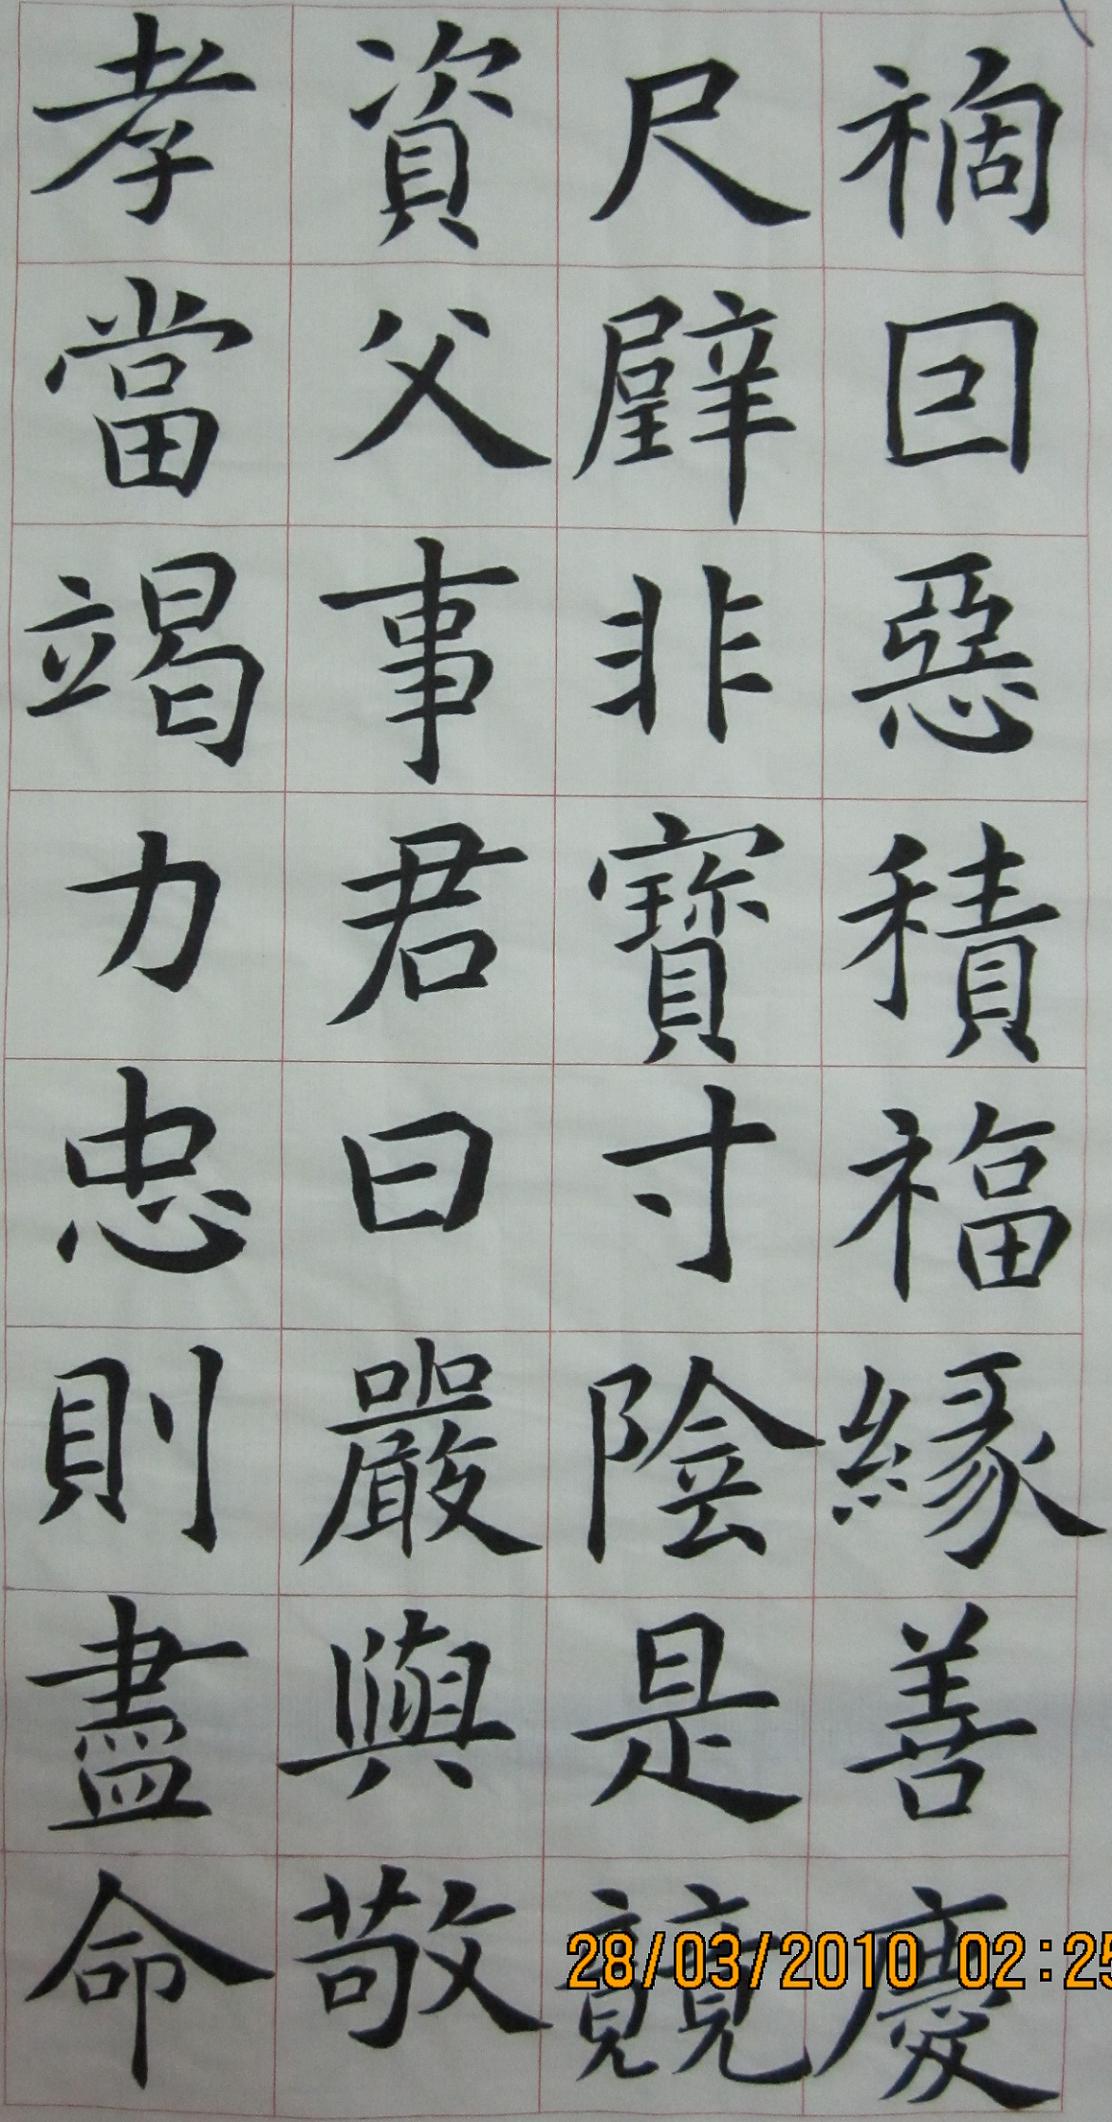 禍因惡積福緣善慶
尺璧非寶寸陰是競
資父事君曰嚴與敬
孝當竭力忠則盡命
28/03/2010 02:25